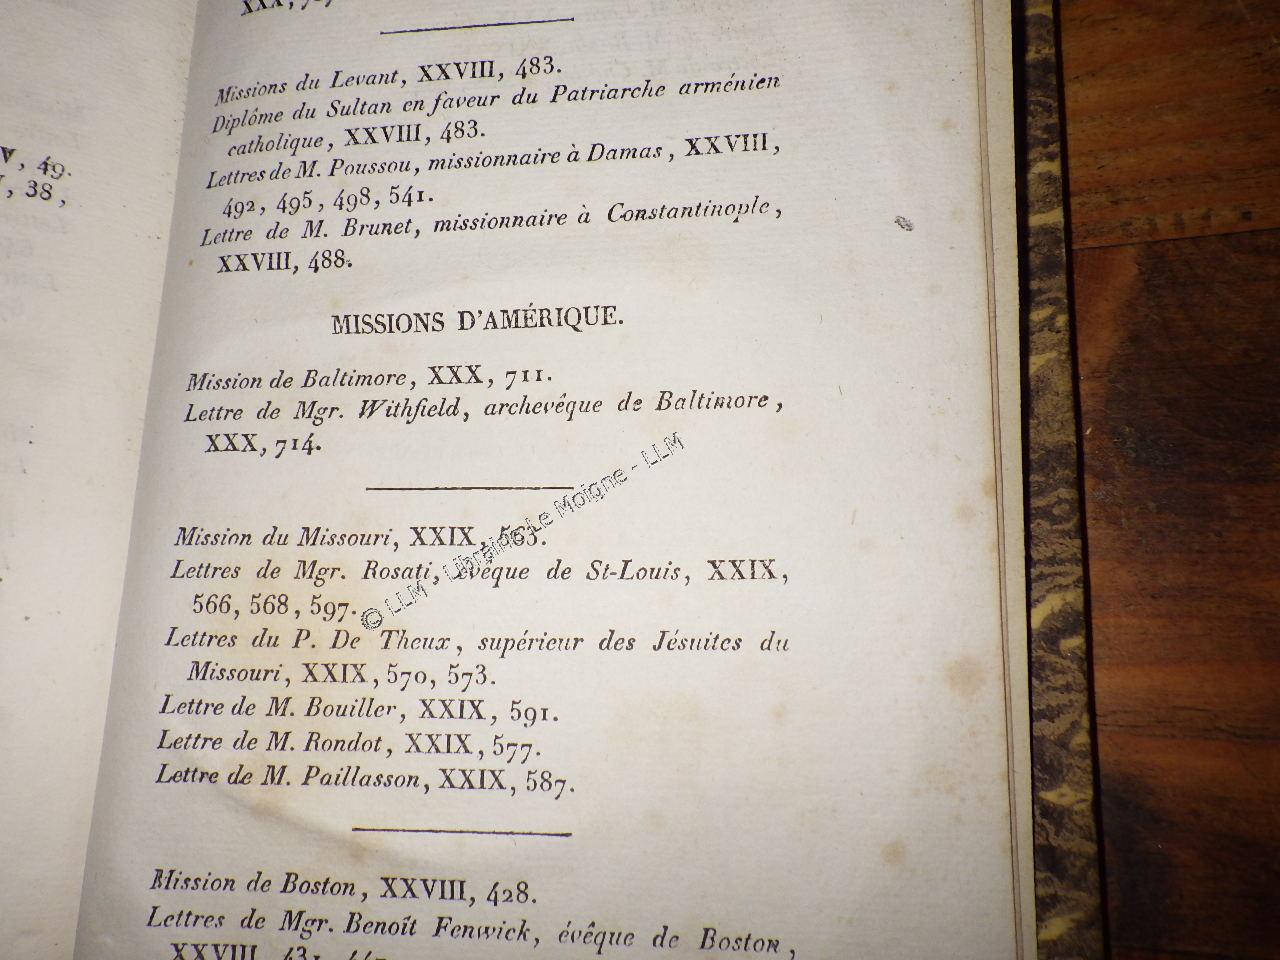 V, 49.
38,
Missions du Levant, XXVIII, 483.
Diplôme du Sultan en faveur du Patriarche arménien
catholique, XXVIII, 483.
Lettres de M. Poussou, missionnaire à Damas, XXVIII,
492, 495, 498, 541.
Lettre de M. Brunet, missionnaire à Constantinople,
XXVIII, 488.
MISSIONS D'AMÉRIQUE.
Mission de Baltimore, XXX, 711.
Lettre de Mgr. Withfield, archevêque de Baltimore,
XXX, 714.
Mission du Missouri, XXIX, 563.
Lettres de Mgr. Rosati, évêque de St-Louis, XXIX,
566, 568, 597.
Lettres du P. De Theux, supérieur des Jésuites du
Missouri, XXIX, 570, 573.
Lettre de M. Bouiller, XXIX, 591.
Lettre de M. Rondot, XXIX, 577.
Lettre de M. Paillasson, XXIX, 587.
Mission de Boston, XXVIII, 428.
Lettres de Mgr. Benoît Fenwick, évêque de Boston,
XXVIII, 431,
© LLM - Librairie Le Moigne - LLM